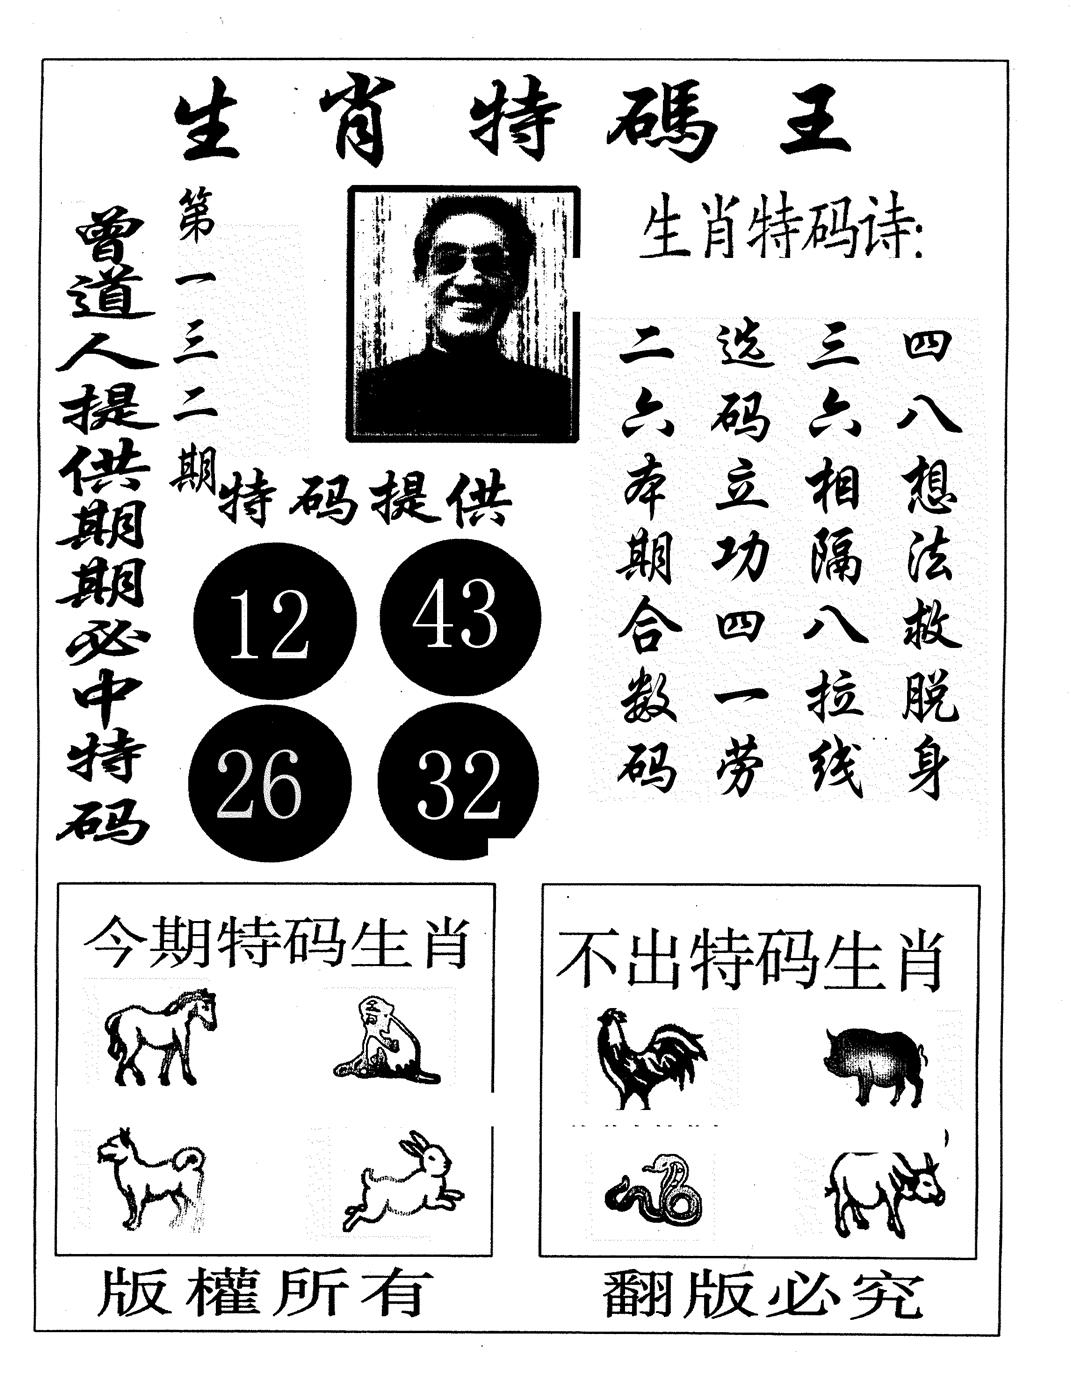 生肖特碼王
曾道人提供期期必中特码
第一三二期
生肖特码诗:
四八想法救脱身
三六相隔八拉线
选码立功四一劳
二六本期合数码
特码提供
12 43
26 32
今期特码生肖
不出特码生肖
版權所有
翻版必究